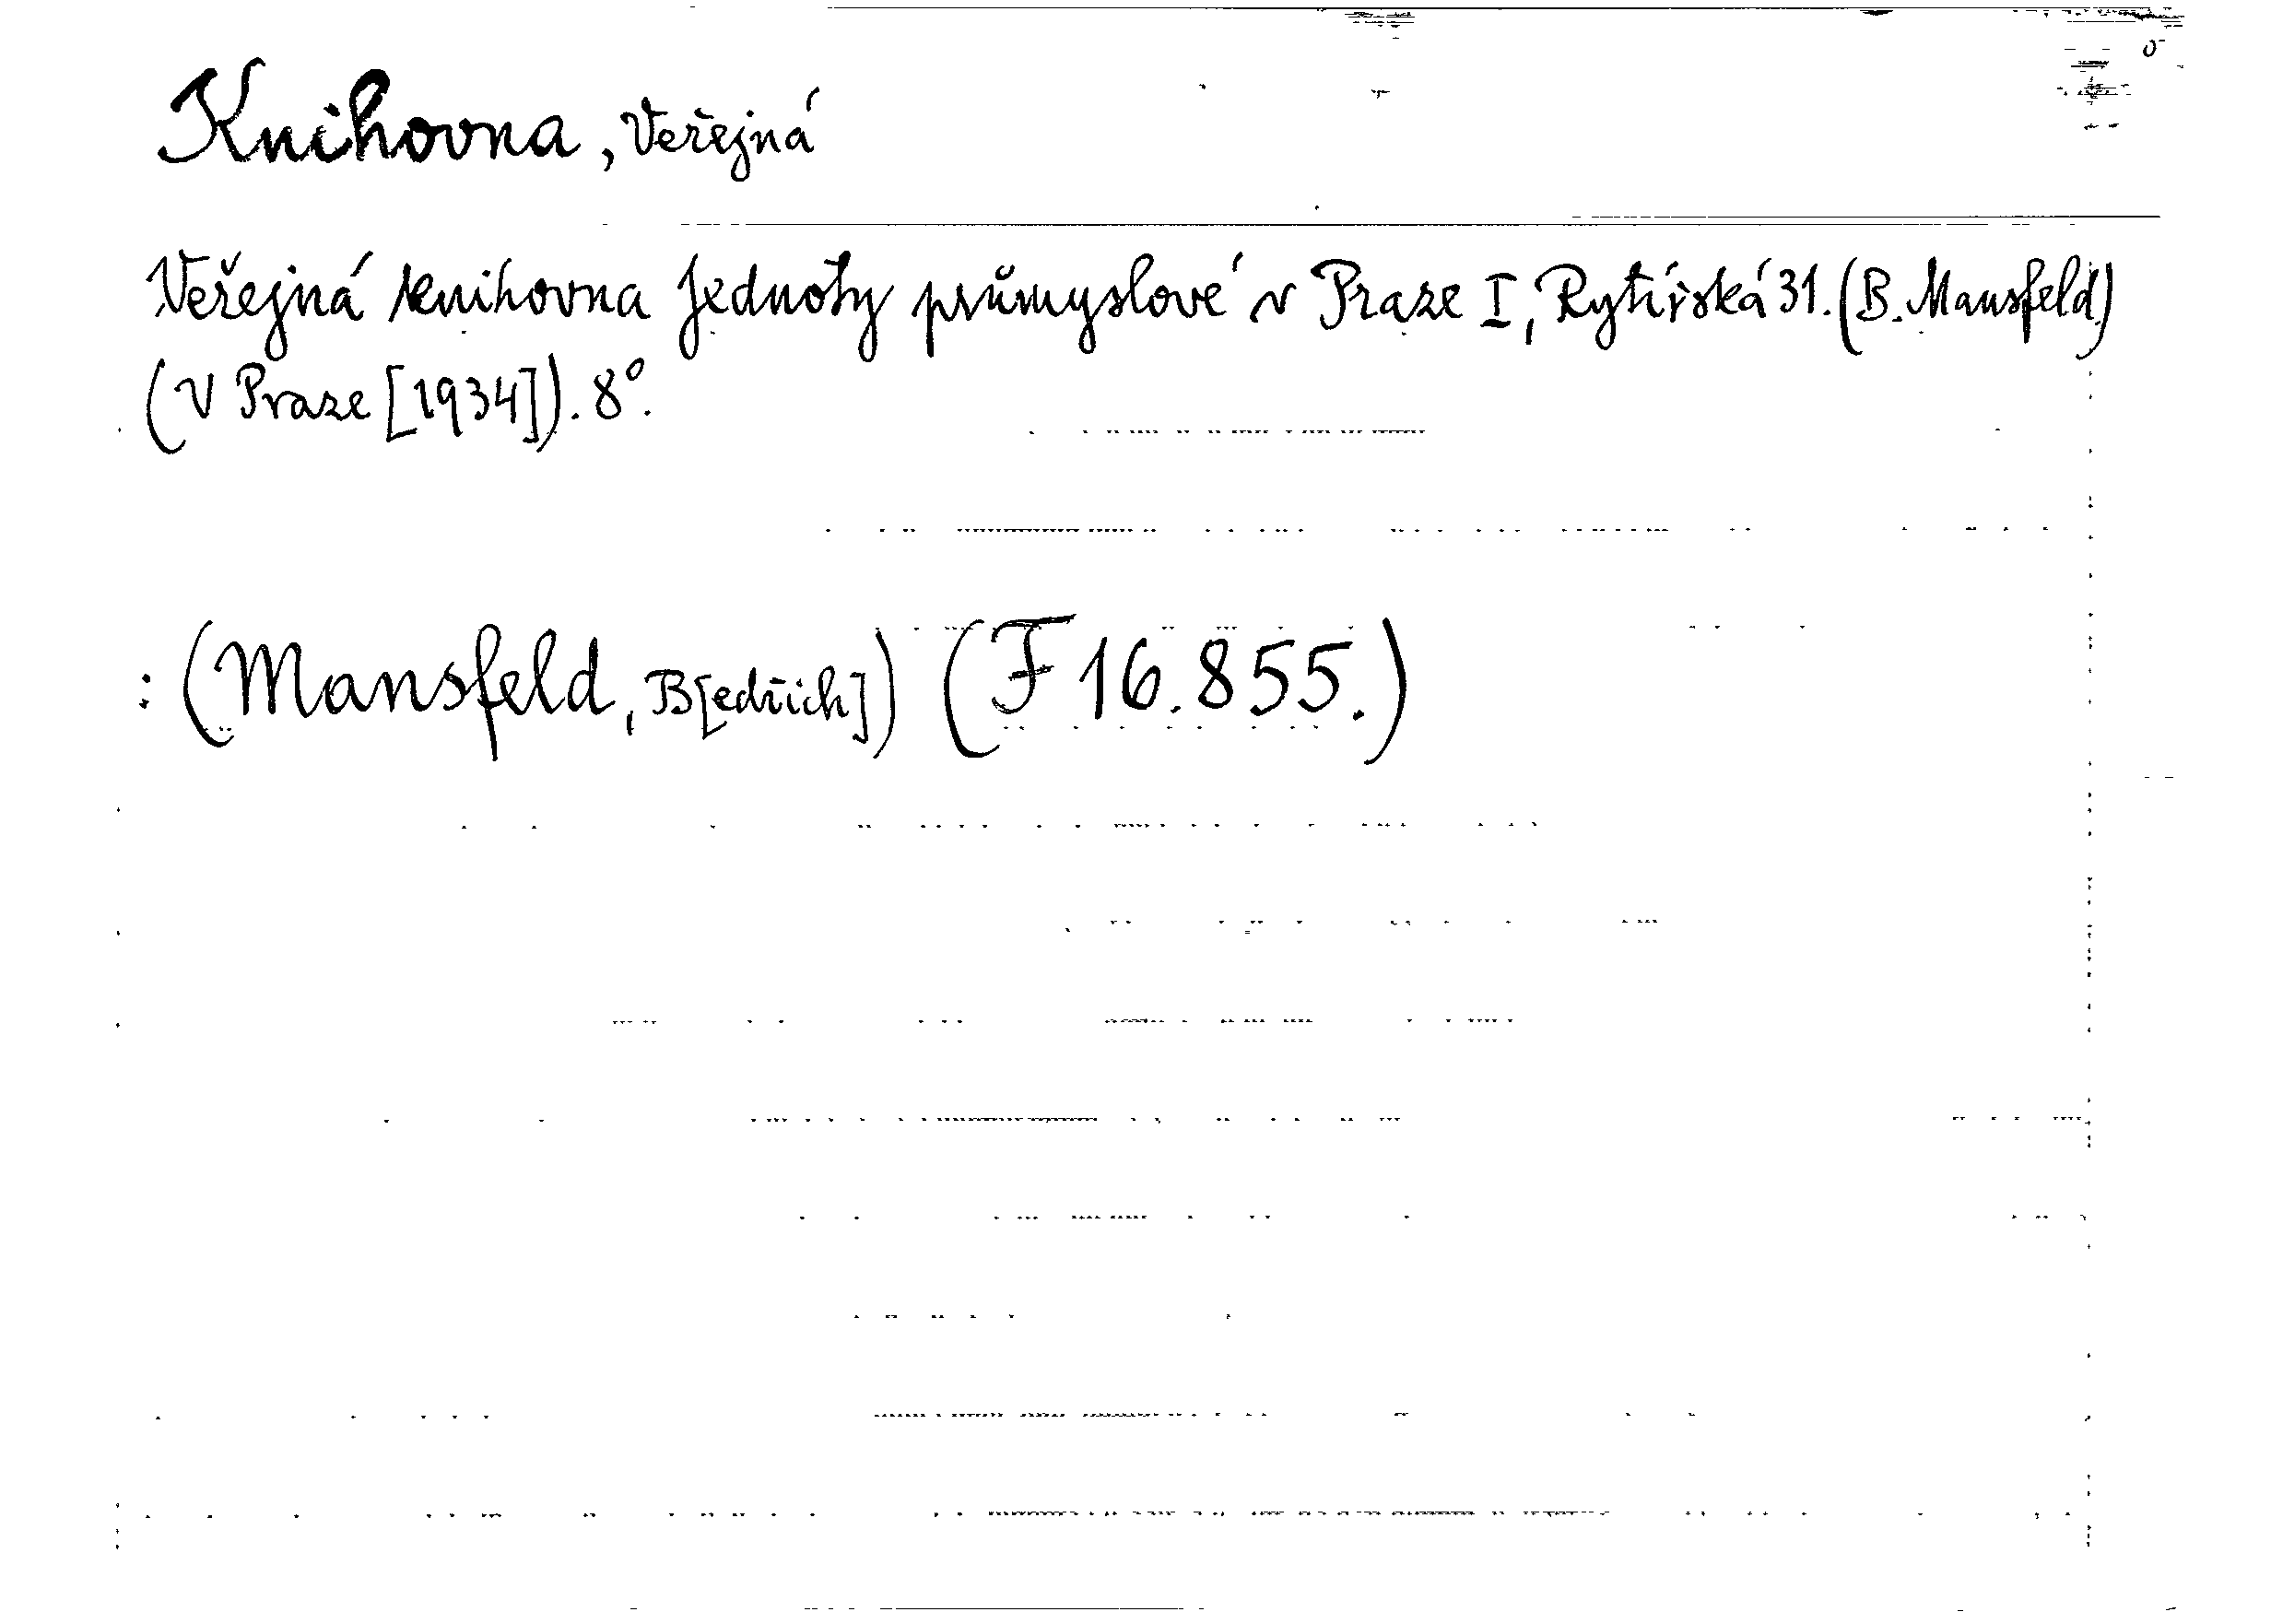 Knihovna, Veřejná
Veřejná knihovna Jednoty průmyslové v Praze I, Rytířská 31. (B. Mansfeld)
(V Praze [1934]). 8°.
: (Mansfeld, B[edřich]) (F 16.855.)